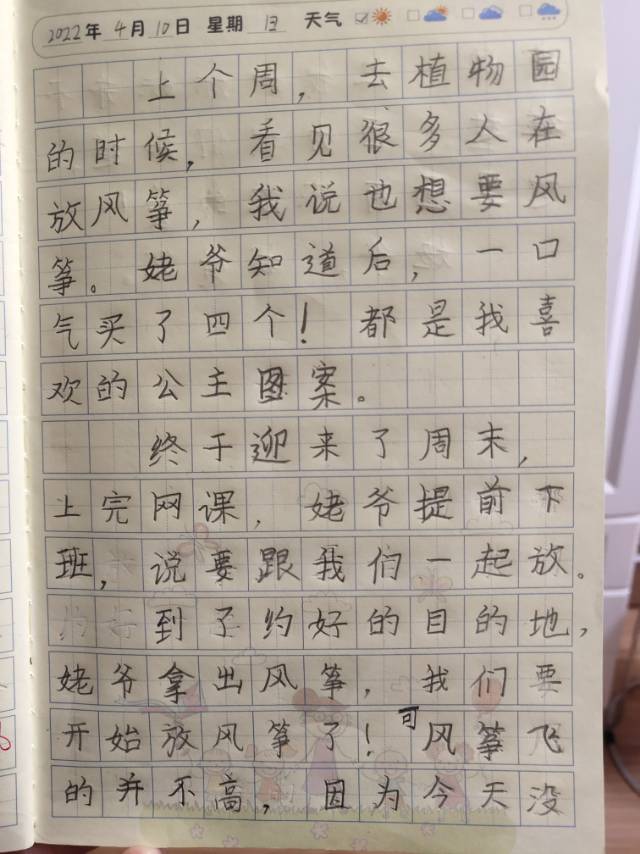 2022年 4月 10日 星期 日 天气
上个周，去植物园
的时候，看见很多人在
放风筝，我说也想要风
筝。姥爷知道后，一口
气买了四个！都是我喜
欢的公主图案。
终于迎来了周末，
上完网课，姥爷提前下
班，说要跟我们一起放。
到了约好的目的地，
姥爷拿出风筝，我们要
开始放风筝了！可风筝飞
的并不高，因为今天没